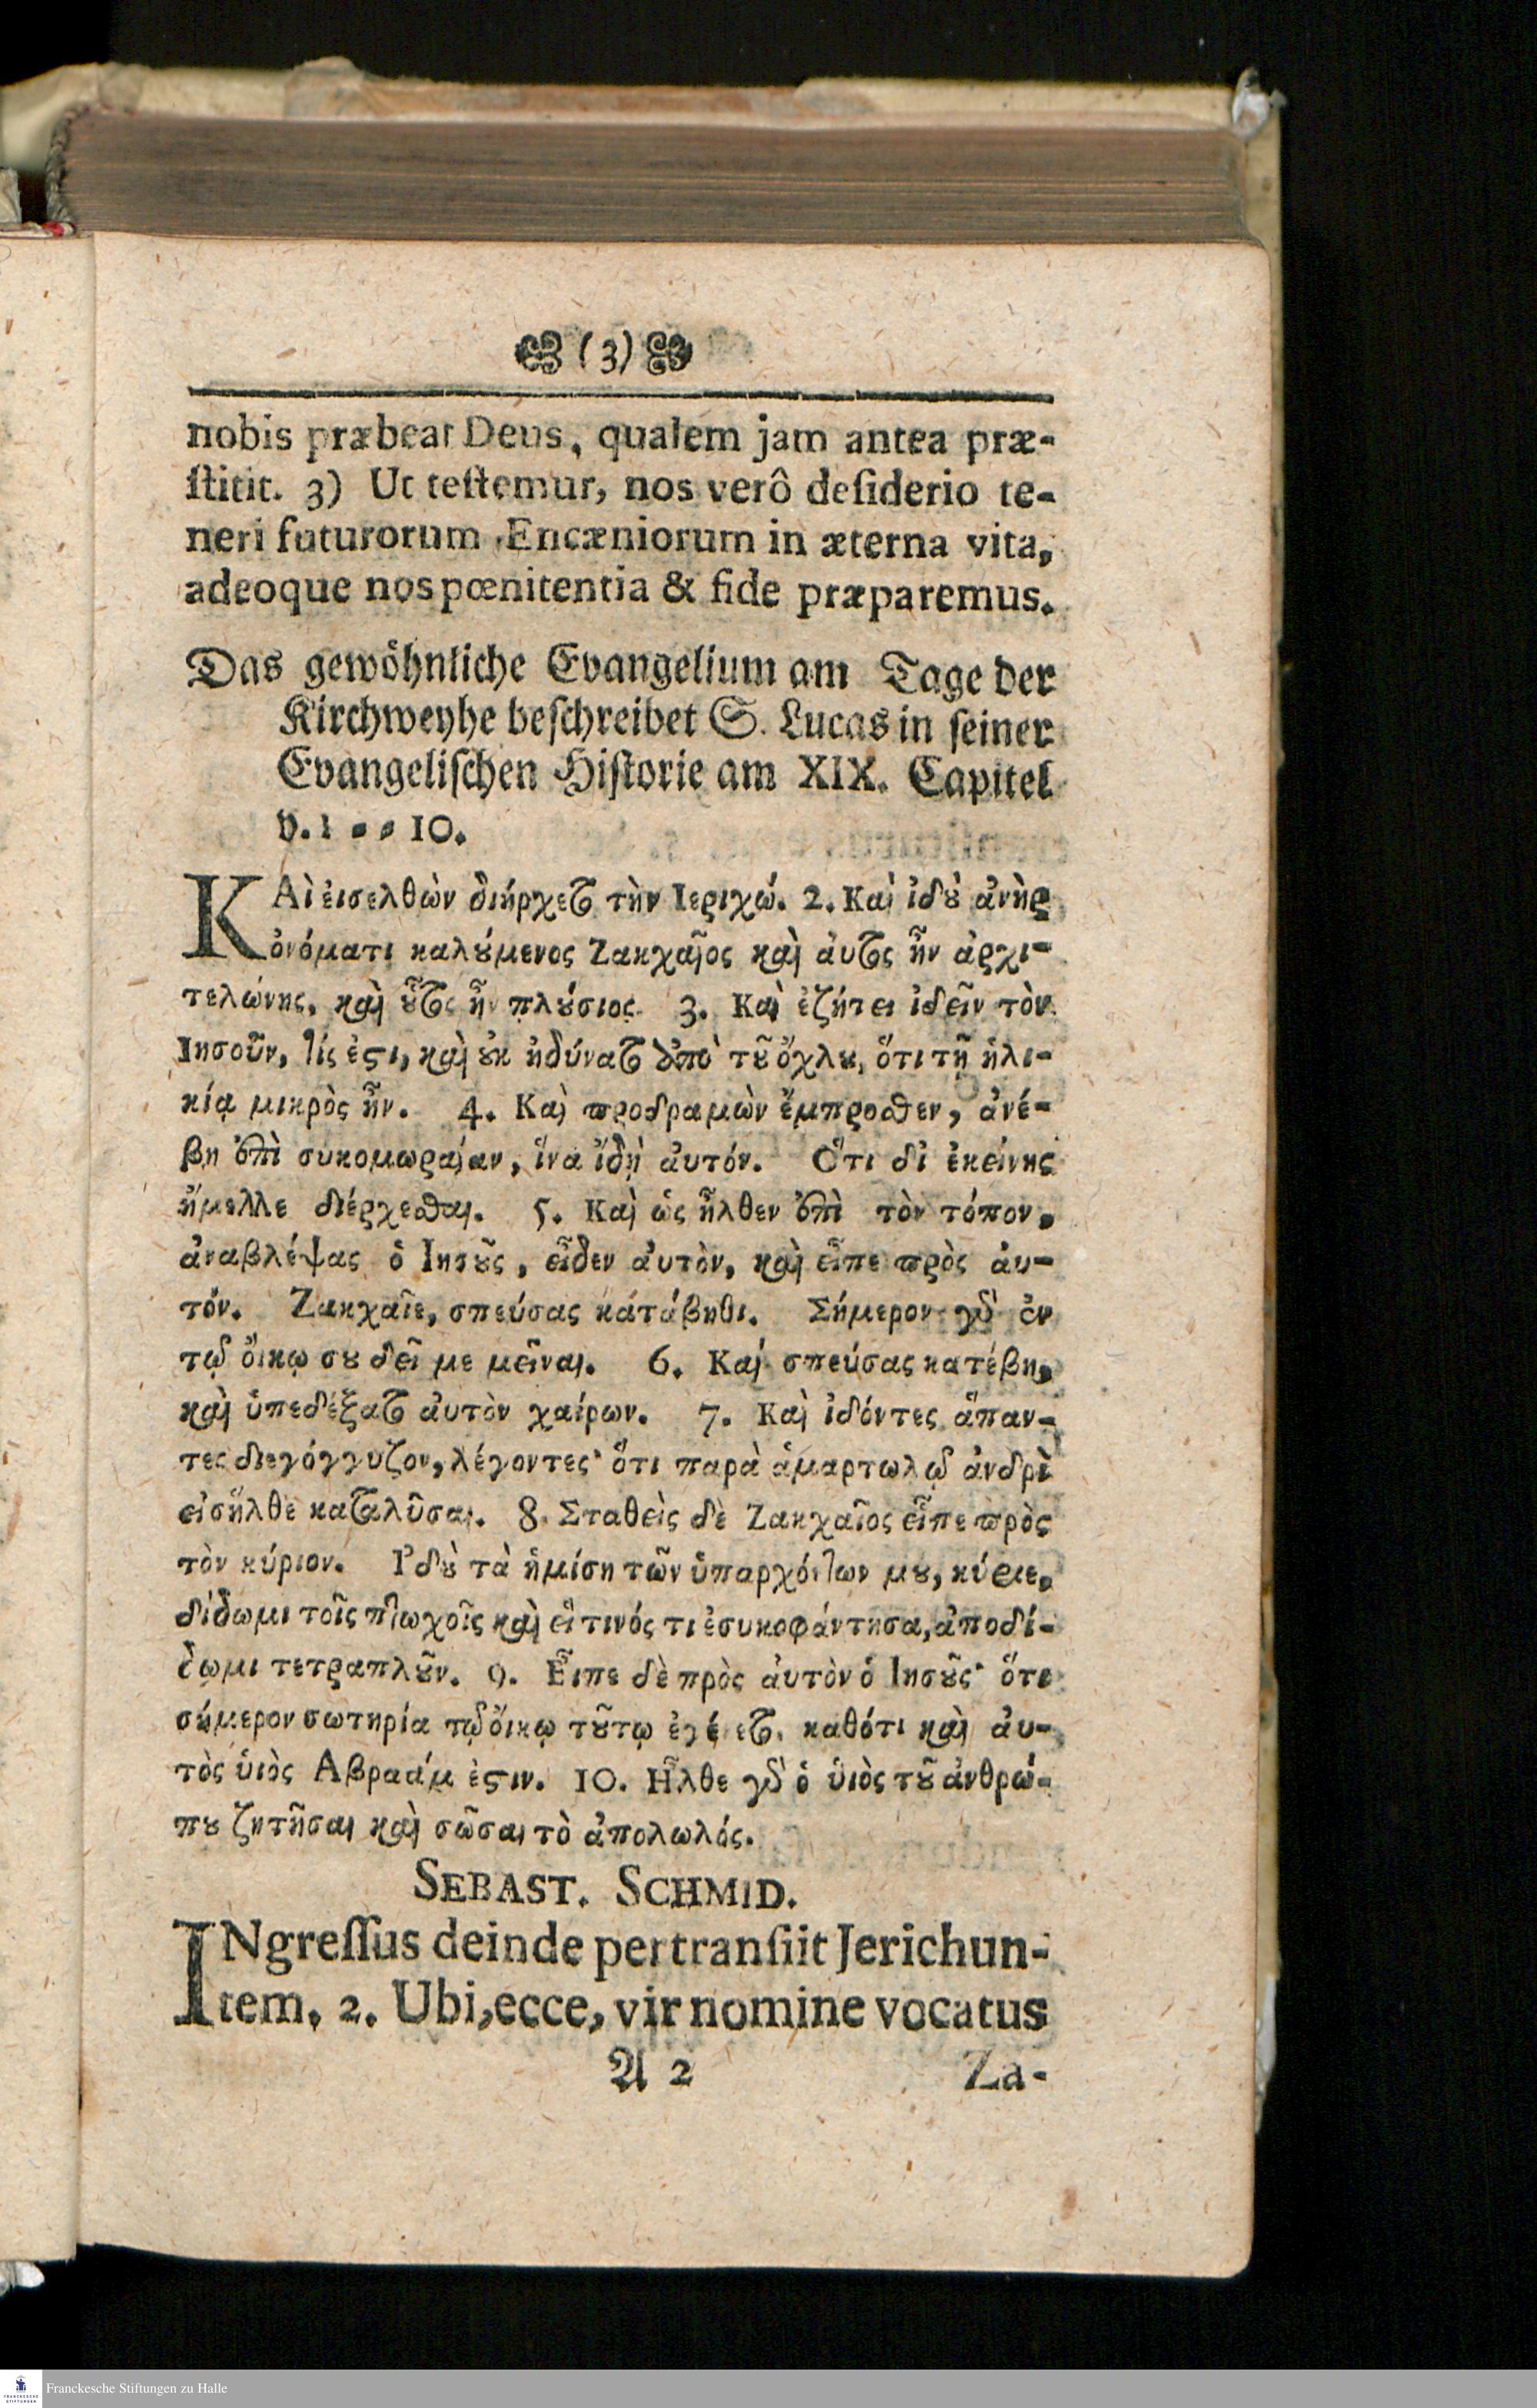 (3)
nobis præbeat Deus, qualem jam antea præ-
ſtitit. 3) Ut teſtemur, nos verô deſiderio te-
neri futurorum Encæniorum in æterna vita,
adeoque nos pœnitentia & fide præparemus.
Das gewöhnliche Evangelium am Tage der
Kirchweyhe beſchreibet S. Lucas in ſeiner
Evangeliſchen Hiſtorie am XIX. Capitel
v. 1 = = 10.
ΚΑὶ ἐισελθὼν διήρχετο τὴν Ιεριχώ. 2. Καὶ ἰδȣ̀ ἀνὴρ
ὀνόματι καλȣ́μενος Ζακχαῖος καὶ ἀυτὸς ἦν ἀρχι-
τελώνης, καὶ ȣ̃τος ἦν πλȣ́σιος. 3. Καὶ ἐζήτει ἰδεῖν τὸν
Ιησοῦν, τίς ἐϛι, καὶ ȣκ ἠδύνατο ἀπὸ τȣ̃ ὄχλȣ, ὅτι τῇ ἡλι-
κίᾳ μικρὸς ἦν. 4. Καὶ προδραμὼν ἔμπροσθεν, ἀνέ-
βη ἐπὶ συκομωραίαν, ἵνα ἴδῃ ἀυτόν. Ὅτι δἰ ἐκείνης
ἤμελλε διέρχεσθαι. 5. Καὶ ὡς ἦλθεν ἐπὶ τὸν τόπον,
ἀναβλέψας ὁ Ιησȣ̃ς, εἶδεν ἀυτὸν, καὶ εἶπε πρὸς ἀυ-
τόν. Ζακχαῖε, σπεύσας κατάβηθι. Σήμερον γὸ ἐν
τῷ ὄικῳ σȣ δεῖ με μεῖναι. 6. Καὶ σπεύσας κατέβη,
καὶ ὑπεδέξατο ἀυτὸν χαίρων. 7. Καὶ ἰδόντες ἅπαν-
τες διεγόγγυζον, λέγοντες· ὅτι παρὰ ἁμαρτωλῷ ἀνδρὶ
εἰσῆλθε καταλῦσαι. 8. Σταθεὶς δὲ Ζακχαῖος εἶπε πρὸς
τὸν κύριον. Ἰδȣ̀ τὰ ἡμίση τῶν ὑπαρχόντων μȣ, κύριε,
δίδωμι τοῖς πτωχοῖς καὶ εἴ τινός τι ἐσυκοφάντησα, ἀποδί-
δωμι τετραπλȣ̃ν. 9. Εἶπε δὲ πρὸς ἀυτὸν ὁ Ιησȣ̃ς· ὅτι
σήμερον σωτηρία τῷ ὄικῳ τȣ́τῳ ἐγένετο, καθότι καὶ ἀυ-
τὸς ὑιὸς Αβραάμ ἐϛιν. 10. Ηλθε γὸ ὁ ὑιὸς τȣ̃ ἀνθρώ-
πȣ ζητῆσαι καὶ σῶσαι τὸ ἀπολωλός.
SEBAST. SCHMID.
INgreſſus deinde pertranſiit Jerichun-
tem. 2. Ubi, ecce, vir nomine vocatus
A 2 Za-
Franckesche Stiftungen zu Halle